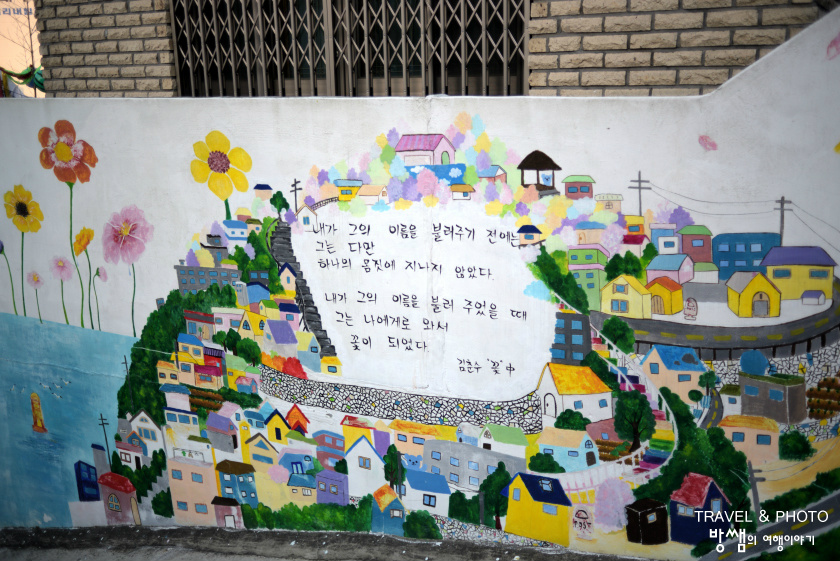 내가 그의 이름을 불러주기 전에는
그는 다만
하나의 몸짓에 지나지 않았다.
내가 그의 이름을 불러 주었을 때
그는 나에게로 와서
꽃이 되었다.
김춘수 '꽃' 中
TRAVEL & PHOTO
방쌤의 여행이야기